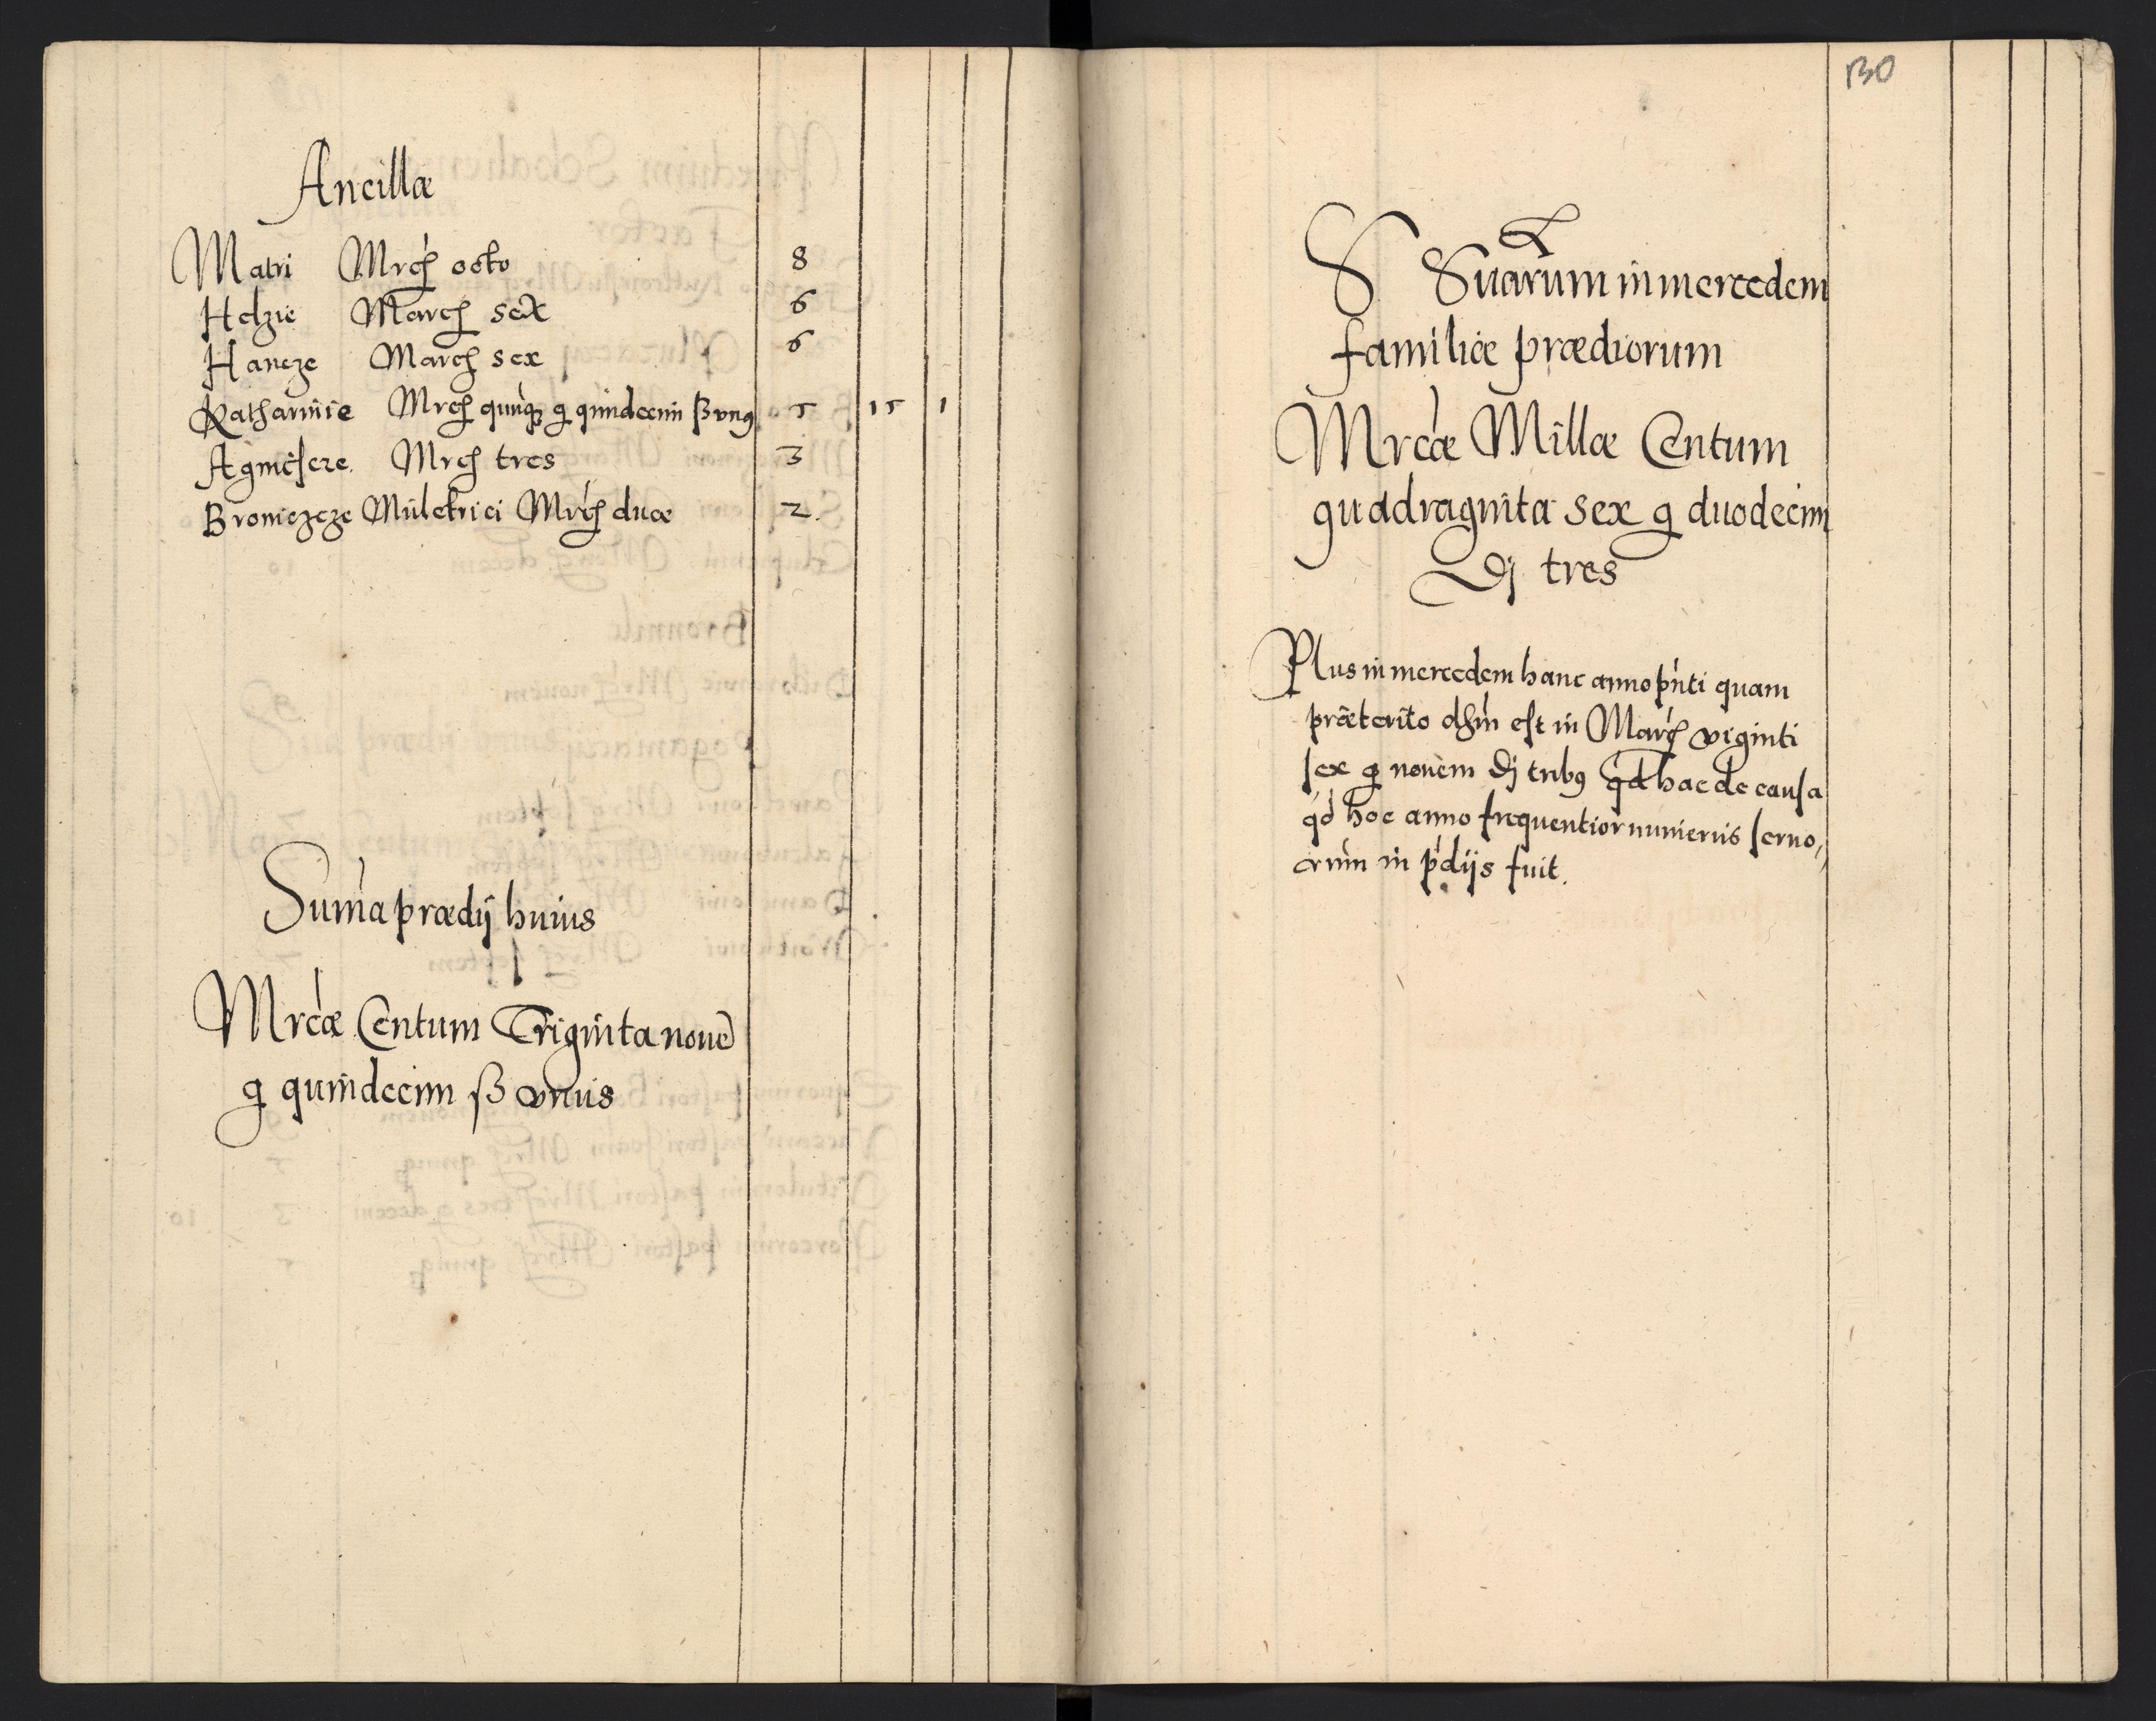 Ancillæ
Matri Mrcȩ octo 8
Helzie Marcȩ sex 6
Hancze Marcȩ sex 6
Katharinie Mrcȩ quinqȝ g quindecim ß vnus 5 15 1
Agnieszce Mrcȩ tres 3
Broniczcze Mulctrici Mrcȩ duæ 2
Suma prædij huius
Mrcæ Centum Triginta noue
g quindecim ß vnus
130
S Suarum in mercedem
familiæ prædiorum
Mrcæ Millæ Centum
quadraginta sex g duodecim
Dj tres
Plus in mercedem hanc anno pnti quam
præterito dṡm est in Marcȩ viginti
sex g nouem Dj tribus qd hac de causa
qd hoc anno frequentior numerus seruo„
orum in pdijs fuit.